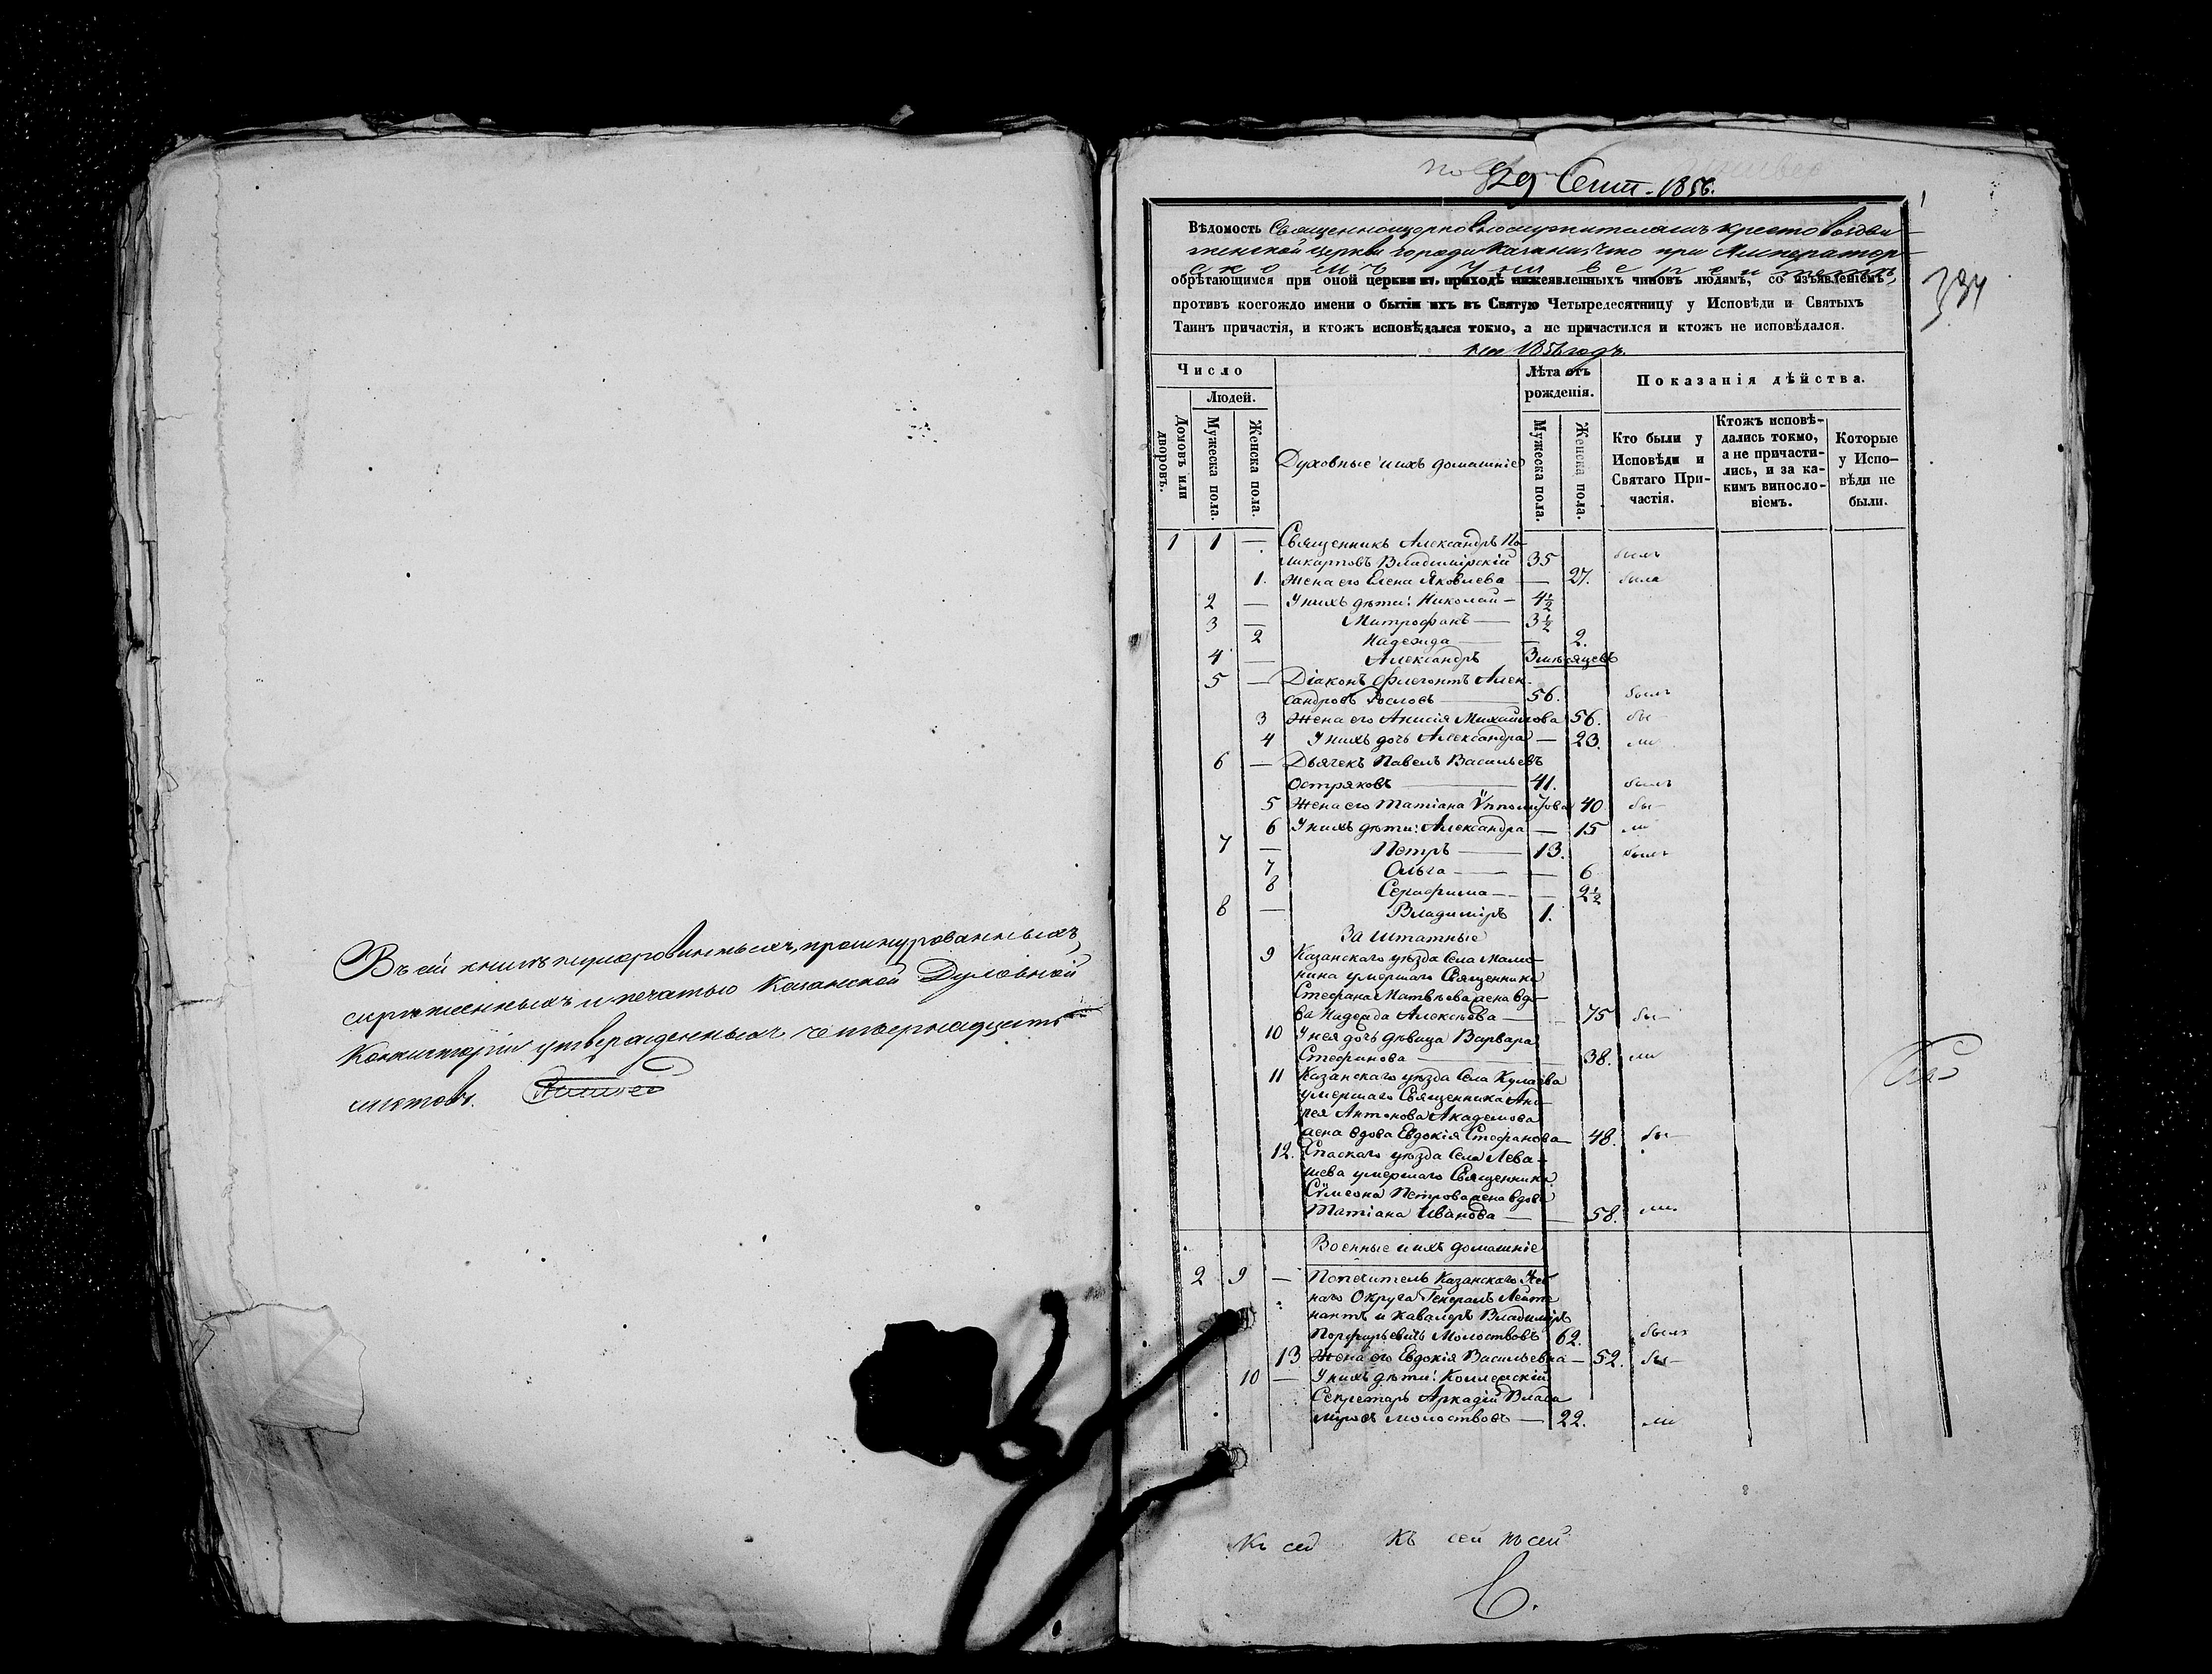 Въ сей книгѣ нумерованныхъ, прошнурованныхъ,
скрѣпленныхъ и печатью Казанской Духовной
Консисторіи утвержденныхъ четырнадцать
листовъ.
29 Сент. 1856.
1
Вѣдомость Священноцерковнослужителямъ Крестовоздви-
женской церкви города Казани, что при Император-
скомъ Университетѣ,
обрѣтающимся при оной церкви въ приходѣ нижеявленныхъ чиновъ людямъ, со изъявленіемъ,
334
противъ коегождо имени о бытіи ихъ въ Святую Четыредесятницу у Исповѣди и Святыхъ
Таинъ причастія, и ктожъ исповѣдался токмо, а не причастился и ктожъ не исповѣдался.
на 1856 годъ.
Число
Людей.
Домовъ или дворовъ.
Мужеска пола.
Женска пола.
Духовные и ихъ домашніе
Лѣта отъ рожденія.
Мужеска пола.
Женска пола.
Показанія дѣйства.
Кто были у Исповѣди и Святаго Причастія.
Ктожъ исповѣдались токмо, а не причастились, и за какимъ винословіемъ.
Которые у Исповѣди не были.
1 1 — Священникъ Александръ По-
ликарповъ Владимірскій 35 былъ
1. Жена его Елена Яковлева — 27. была
2 — У нихъ дѣти: Николай — 4½
3 — Митрофанъ — 3½
2 Надежда — — 2.
4 — Александръ 3 мѣсяцевъ
5 — Діаконъ Флегонтъ Алек-
сандровъ Рословъ — 56. былъ
3 Жена его Анисія Михайлова 56. бы-
4 У нихъ дочь Александра — 23. ли
6 — Дьячекъ Павелъ Васильевъ
Остряковъ — 41. былъ
5 Жена его Татіана Ѵпполитова 40 бы-
6 У нихъ дѣти: Александра — 15 ли
7 — Петръ — 13. былъ
7 Ольга — — 6
8 Серафима — — 2½
8 — Владиміръ 1.
Заштатные
9 Казанскаго уѣзда села Мами-
нина умершаго Священника
Стефана Матвѣева жена вдо-
ва Надежда Алексѣева — — 75 бы-
10 У нея дочь дѣвица Варвара
Стефанова — — 38. ли
11 Казанскаго уѣзда села Кулаева
умершаго Священника Анд-
рея Антонова Академова
жена вдова Евдокія Стефанова — 48. бы-
12. Спаскаго уѣзда села Лева-
шева умершаго Священника
Сѵмеона Петрова жена вдова
Татіана Иванова — — 58. ли.
Военные и ихъ домашніе
2 9 — Попечитель Казанскаго Учеб-
наго Округа Генералъ Лейте-
нантъ и Кавалеръ Владиміръ
Порфирьевичь Молоствовъ 62. былъ
13 Жена его Евдокія Васильевна — 52. бы-
10 — У нихъ дѣти: Коллежскій
Секретарь Аркадій Влади-
міровъ Молоствовъ — 22. ли
Къ сей Къ сей